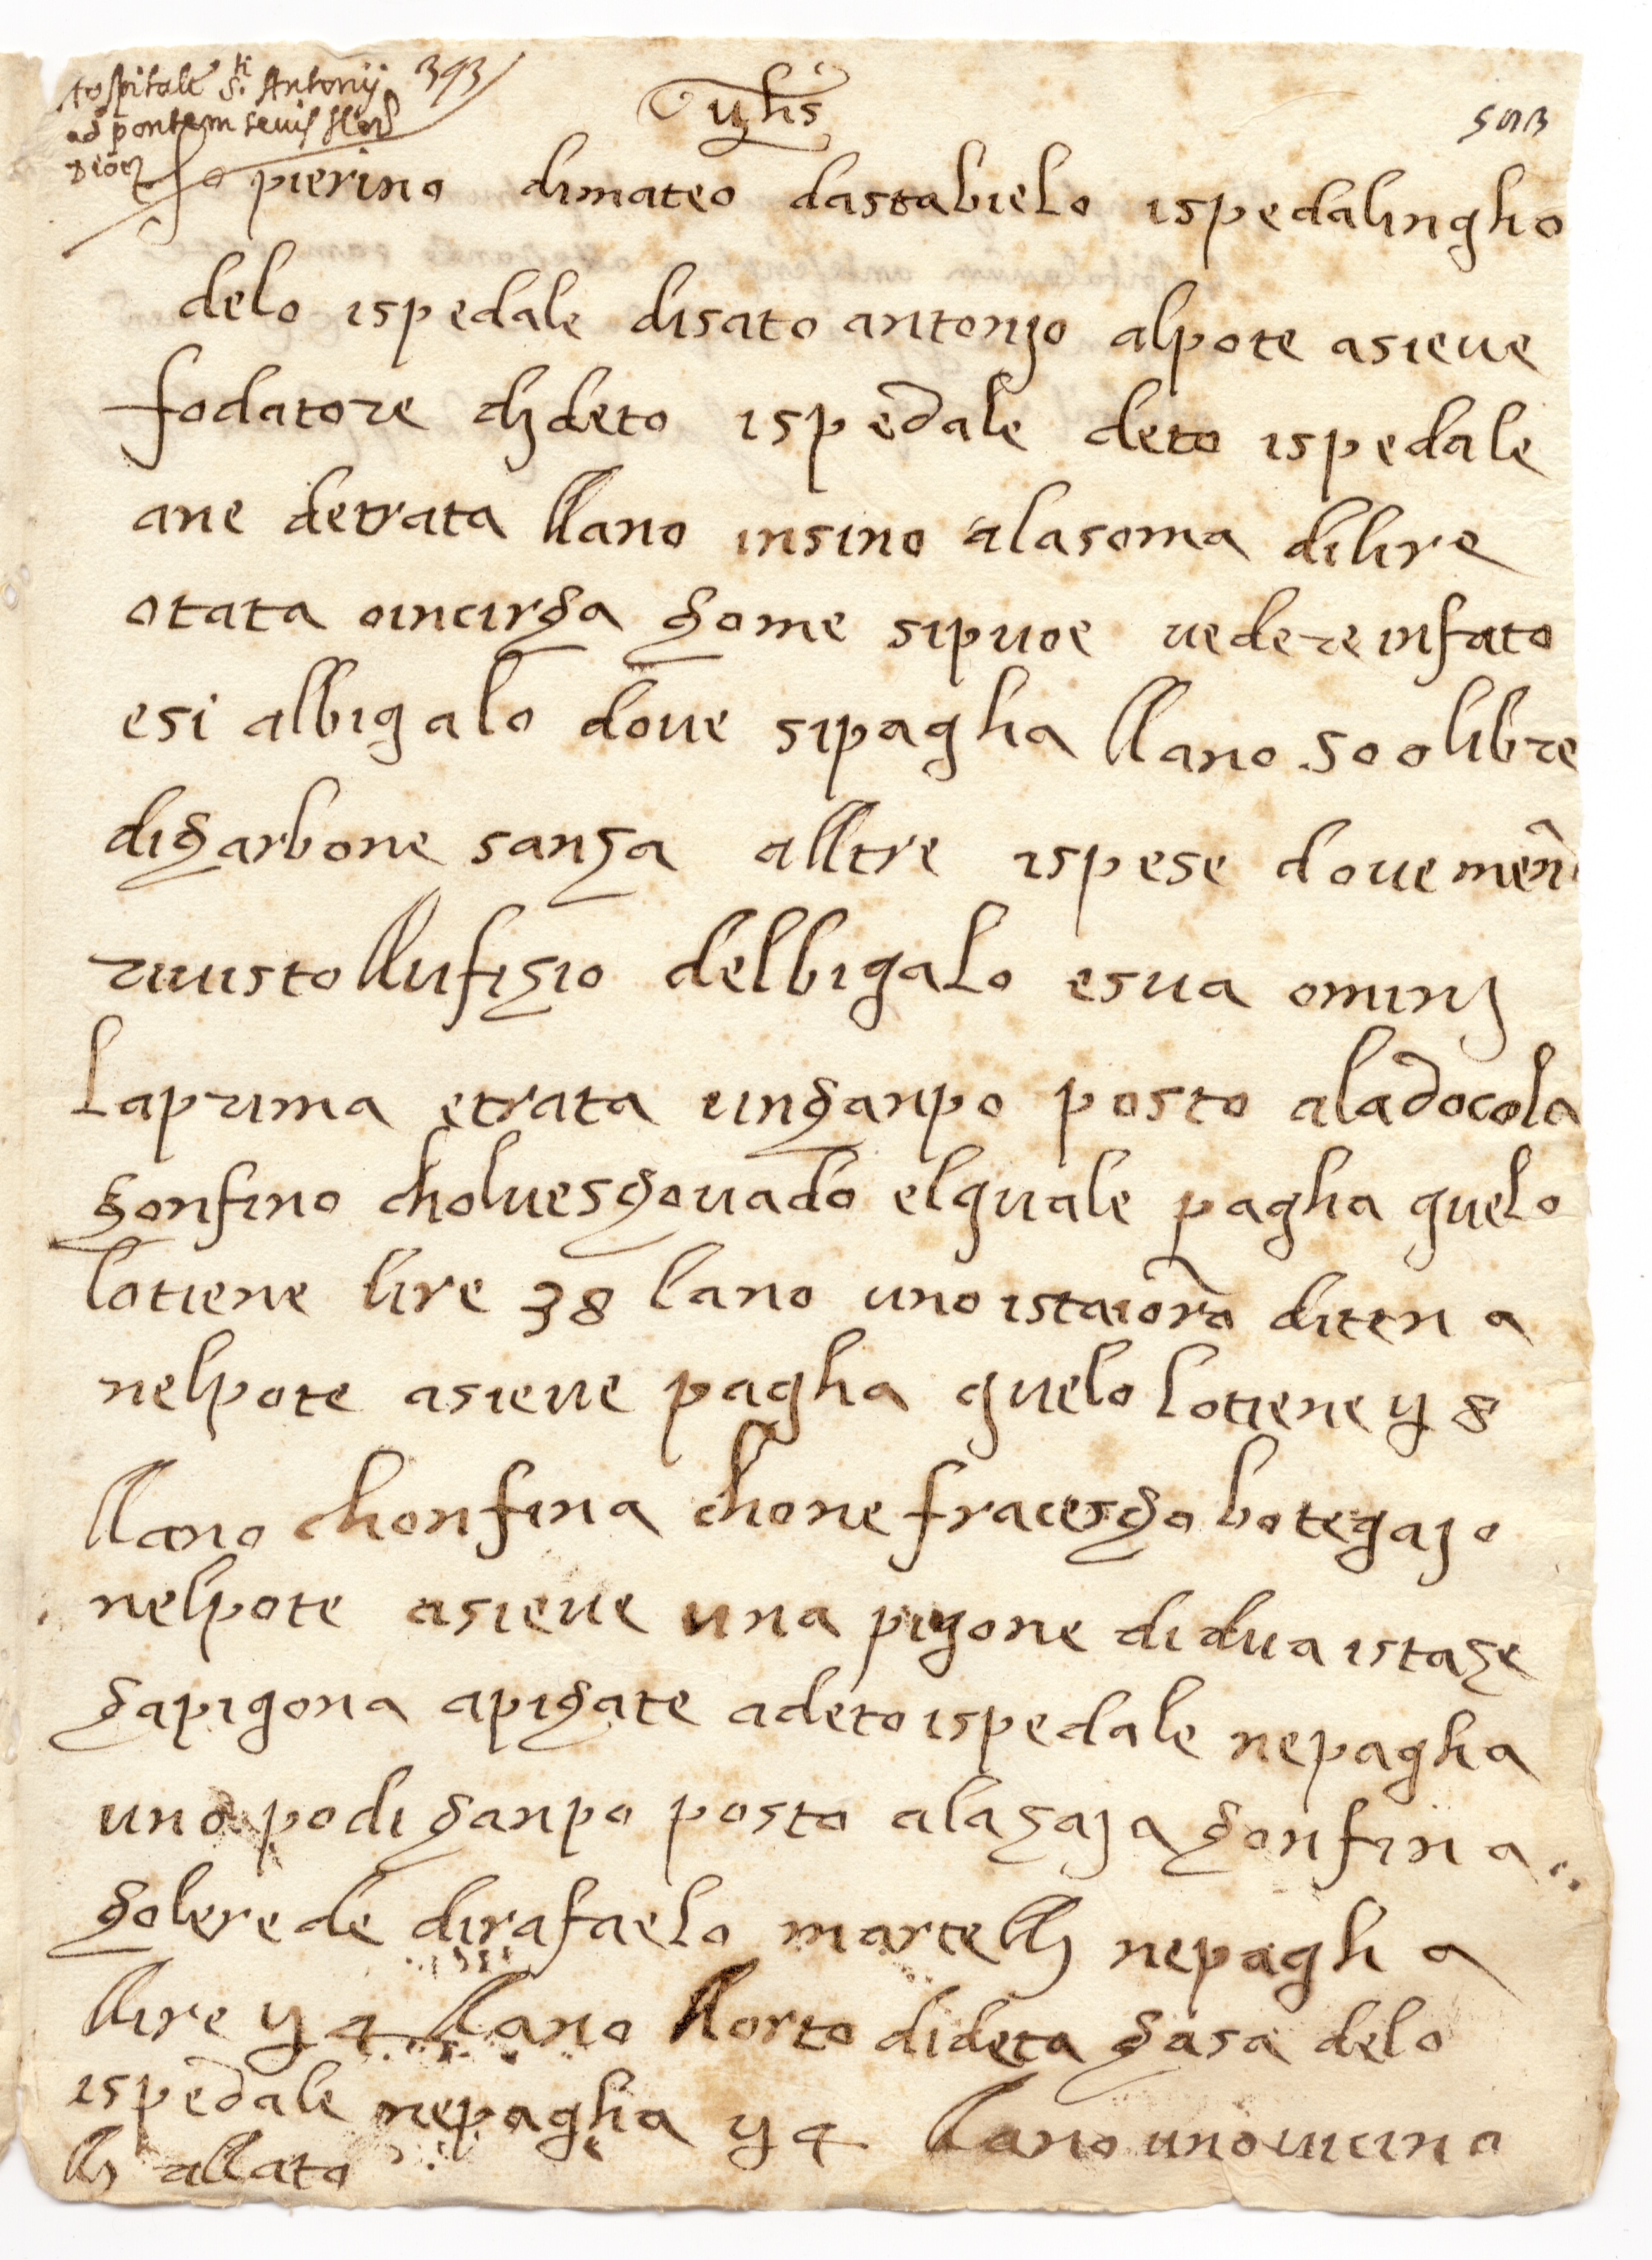 Hospitale Sti Antonij 393
ad pontem sevis flor
dioc
yhs
503
Io pierino dimateo dastabielo ispedalingho
delo ispedale disato antonjo alpote asieve
fodatore dj deto ispedale deto ispedale
ane detrata llano insino alasoma dilire
otata oincirça çome sipuoe vedere infato
esi albigalo dove sipagha llano 500 libre
diçarbone sança alltre ispese dove
llufiçio delbigalo esua ominj
laprima etrata unçanpo posto aladocola
çonfino choluesçovado elquale pagha quelo
lotiene lire 38 lano uno istaioro ditera
nelpote asieve pagha quelo lotiene y 8
llano chonfina chone fracesço botegajo
nelpote asieve una pigone didua istaçe
çapigona apiçate adeto ispedale nepagha
uno podi çanpo posto alaçaja çonfina
çolerede dirafaelo martellj nepagha
llire y 4 llano llorto dideta çasa delo
ispedale nepagha y 4 llano uno vicino
llj allato